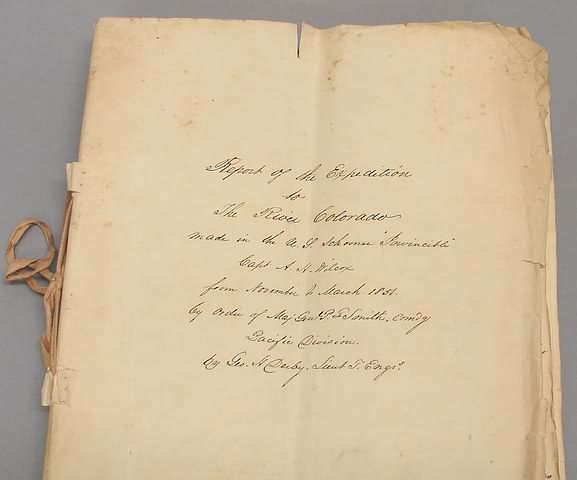 Report of the Expedition
to
The River Colorado
made in the U. S. Schooner "Invincible"
Capt A. H. Wilcox
from November to March 1851.
by order of Maj Genl P. F. Smith. comdg
Pacific Division.
by Geo. H Derby. Lieut T. Engrs.